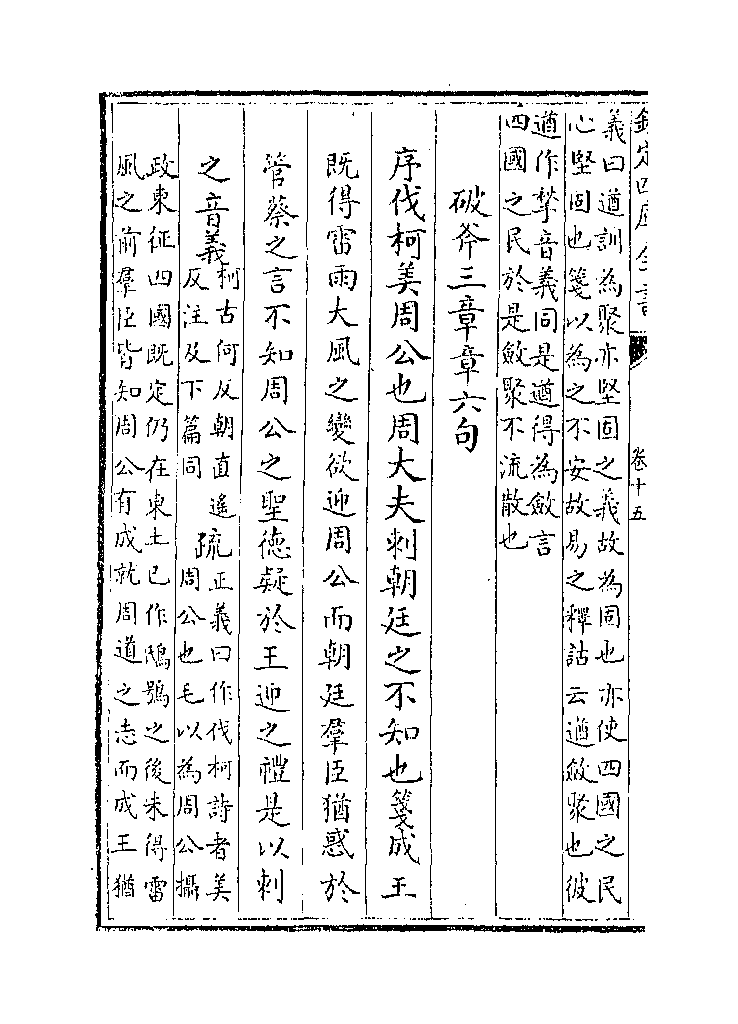 欽定四庫全書
卷十五
義曰遒訓為聚亦堅固之義故為固也亦使四國之民
心堅固也箋以為之不安故易之釋詁云遒斂聚也彼
遒作揫音義同是遒得為斂言
四國之民於是斂聚不流散也
破斧三章章六句
序伐柯美周公也周大夫刺朝廷之不知也箋成王
既得雷雨大風之變欲迎周公而朝廷羣臣猶惑於
管蔡之言不知周公之聖德疑於王迎之禮是以刺
之音義
柯古何反朝直遥
反注及下篇同
疏
正義曰作伐柯詩者美
周公也毛以為周公攝
政東征四國既定仍在東土已作鴟鴞之後未得雷
風之前羣臣皆知周公有成就周道之志而成王猶